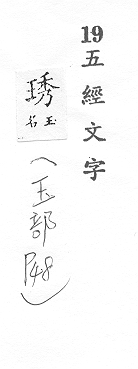 19五經文字
琇
玉名
(玉部P48)